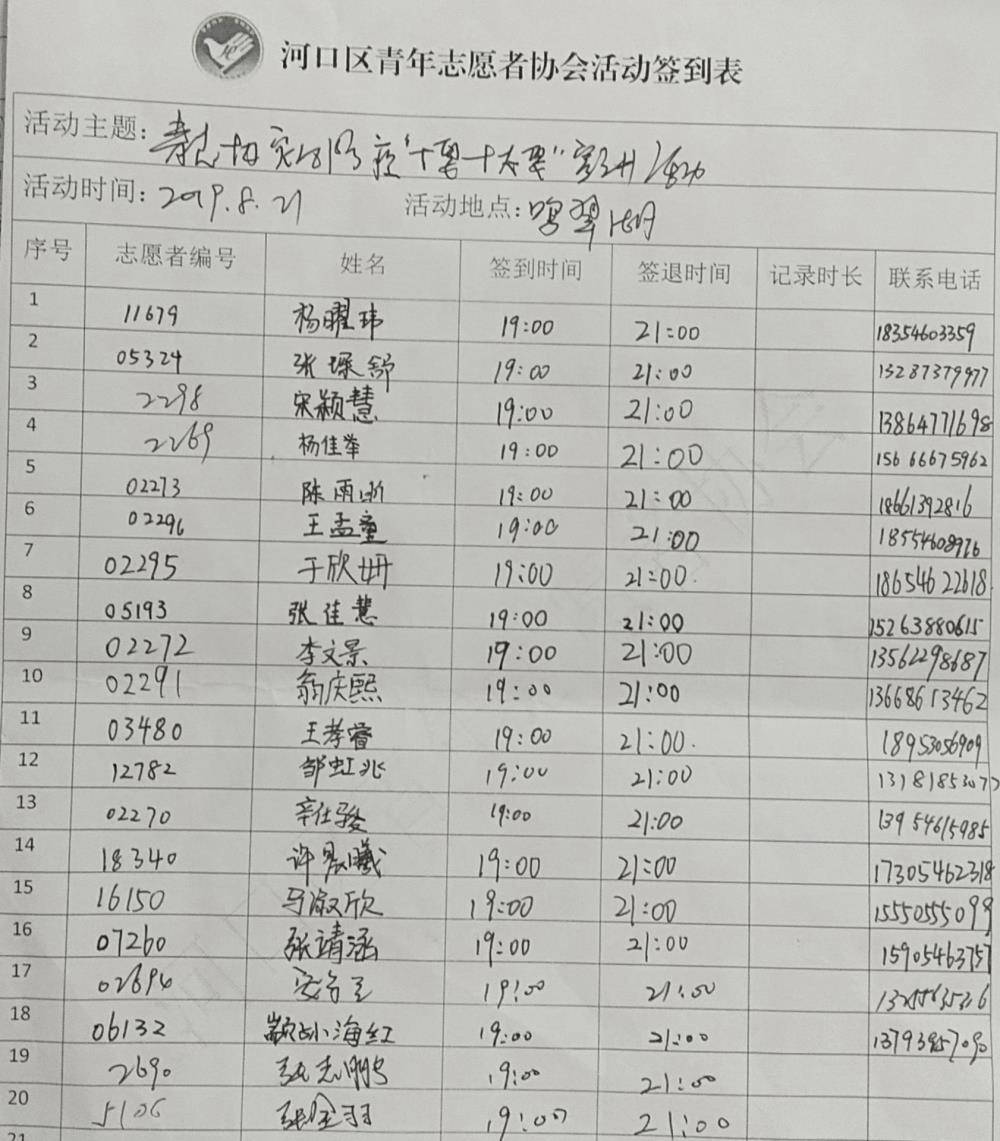 河口区青年志愿者协会活动签到表
活动主题: "十要十不要"
活动时间: 2019.8.21 活动地点: 鸣翠湖
序号 志愿者编号 姓名 签到时间 签退时间 记录时长 联系电话
1 11679 杨曜玮 19:00 21:00 18354603359
2 05324 张琛舒 19:00 21:00 15287379977
3 2298 宋颖慧 19:00 21:00 13864771698
4 2269 杨佳举 19:00 21:00 15666675962
5 02273 陈雨 19:00 21:00 18661392816
6 02296 王孟童 19:00 21:00 18554608976
7 02295 于欣妍 19:00 21:00 18654622618
8 05193 张佳慧 19:00 21:00 15263880615
9 02272 李文景 19:00 21:00 13562298687
10 02291 翁庆熙 19:00 21:00 13668613462
11 03480 王孝睿 19:00 21:00 18953056909
12 12782 邹虹兆 19:00 21:00 13181853077
13 02270 辛仕骏 19:00 21:00 13954615985
14 18340 许晨曦 19:00 21:00 17305462318
15 16150 马淑欣 19:00 21:00 15550555099
16 07260 张靖涵 19:00 21:00 15905463757
17 02694 19:00 21:00
18 06132 海红 19:00 21:00
19 2690 张志鹏 19:00 21:00
20 5106 张金羽 19:00 21:00
21